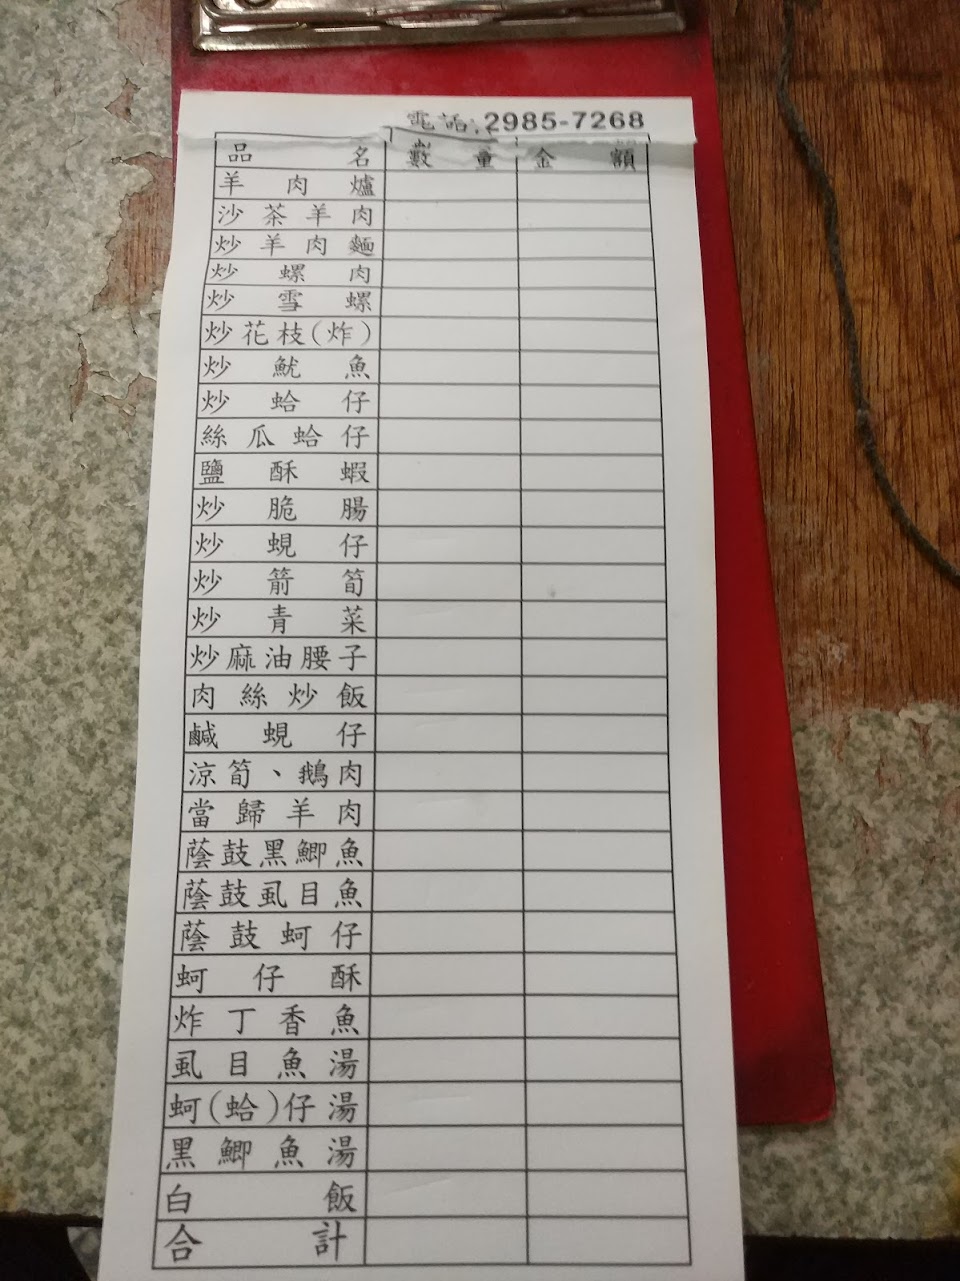 電話:2985-7268
品名 數量 金額
羊肉爐
沙茶羊肉
炒羊肉麵
炒螺肉
炒雪螺
炒花枝(炸)
炒魷魚
炒蛤仔
絲瓜蛤仔
鹽酥蝦
炒脆腸
炒蜆仔
炒箭筍
炒青菜
炒麻油腰子
肉絲炒飯
鹹蜆仔
涼筍、鵝肉
當歸羊肉
蔭鼓黑鯽魚
蔭鼓虱目魚
蔭鼓蚵仔
蚵仔酥
炸丁香魚
虱目魚湯
蚵(蛤)仔湯
黑鯽魚湯
白飯
合計